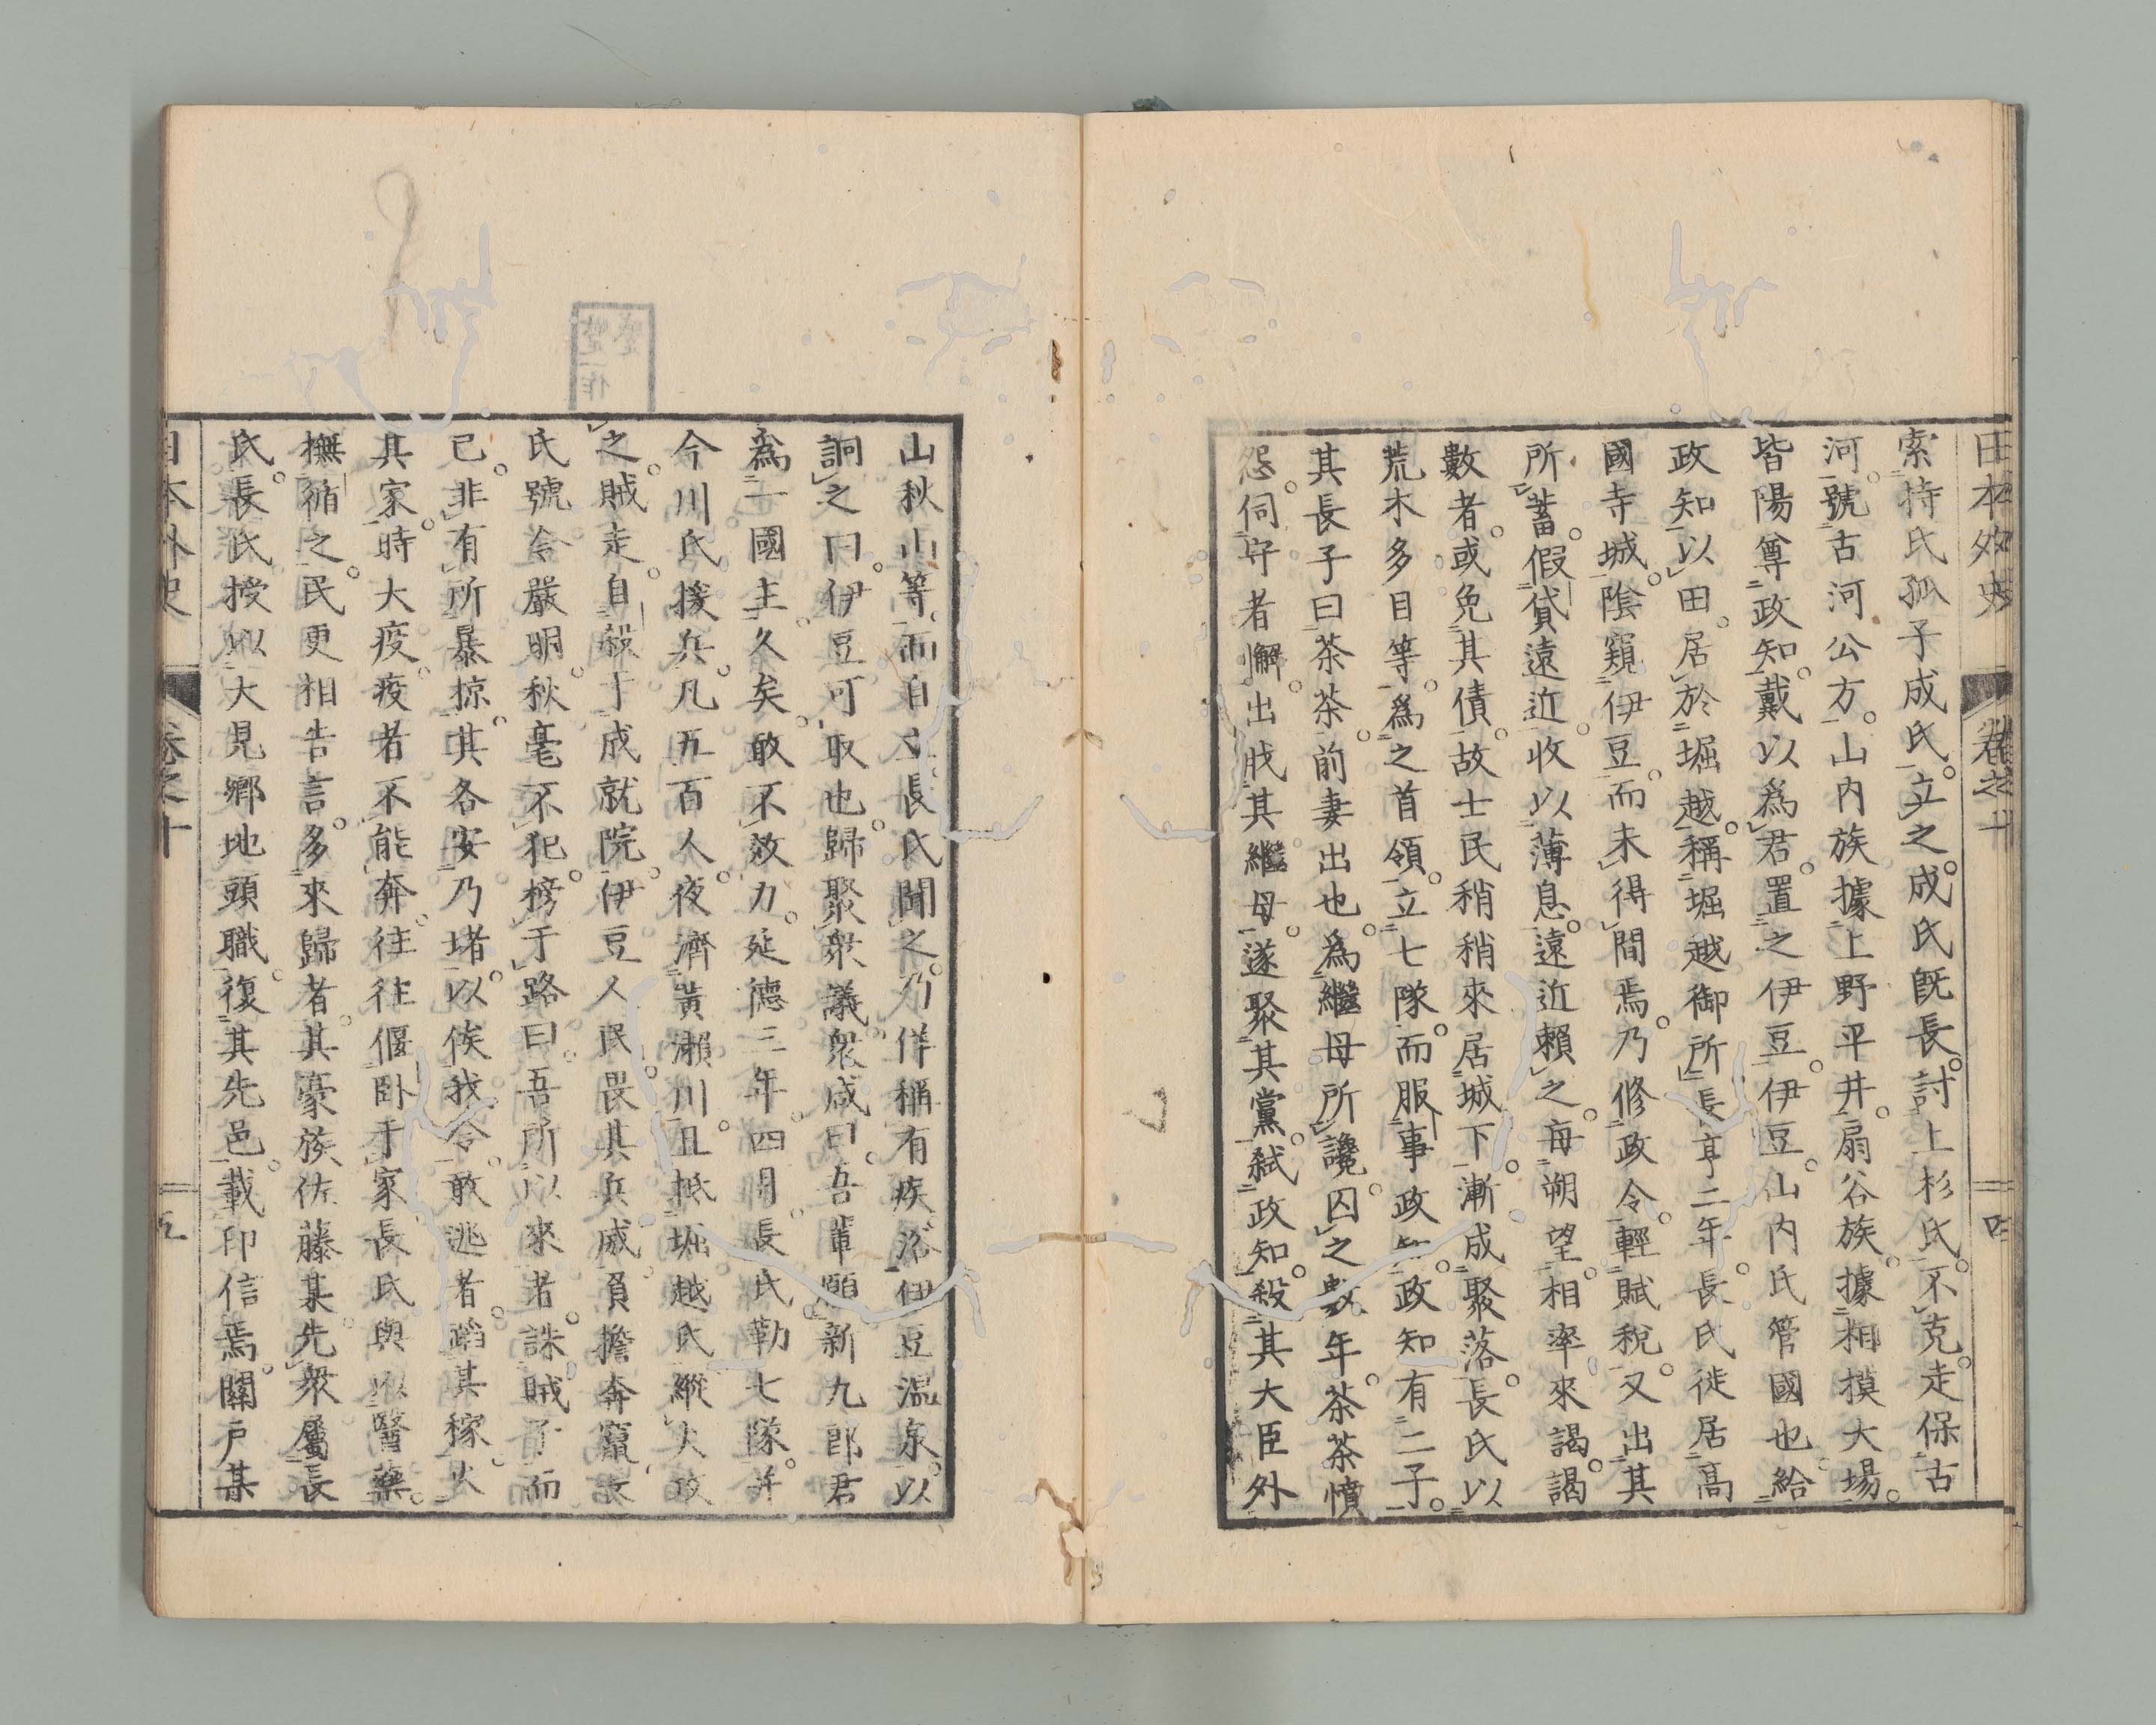 日本外史 卷之十 四
索持氏孤子成氏立之成氏既長討上杉氏不克走保古
河號古河公方山内族據上野平井扇谷族據相摸大場
皆陽尊政知戴以爲君置之伊豆伊豆山内氏管國也給
政知以田居於堀越稱堀越御所長亨二年長氏徙居高
國寺城陰窺伊豆而未得間焉乃修政令輕賦税又出其
所蓄假貸遠近收以薄息遠近賴之毎朔望相率來謁謁
數者或免其債故士民稍稍來居城下漸成聚落長氏以
荒木多目等爲之首領立七隊而服事政知政知有二子
其長子曰茶茶前妻出也爲繼母所讒囚之數年茶茶憤
怨伺守者懈出戕其繼母遂聚其黨弑政知殺其大臣外
山秋山等而自立長氏聞之乃佯稱有疾浴伊豆温泉以
詗之曰伊豆可取也歸聚衆議衆咸曰吾輩願新九郎君
爲一國主久矣敢不效力延德三年四月長氏勒七隊并
今川氏援兵凡五百人夜濟黄瀬川且抵堀越氏縱火攻
之賊走自殺于成就院伊豆人民畏其兵威負擔奔竄長
氏號令嚴明秋毫不犯榜于路曰吾所以來者誅賊子而
已非有所暴掠其各安乃堵以俟我令敢逃者蹈其稼火
其家時大疫疫者不能奔往往偃臥于家長氏與以醫藥
撫循之民更相告言多來歸者其豪族佐藤某先衆屬長
氏長氏授以大見郷地頭職復其先邑載印信焉關戸某
日本外史 卷之十 五